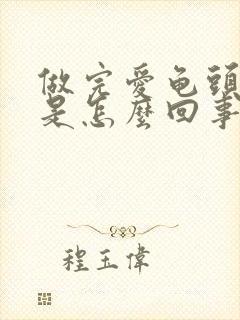 做完愛龜頭
是怎麼回事
程玉偉